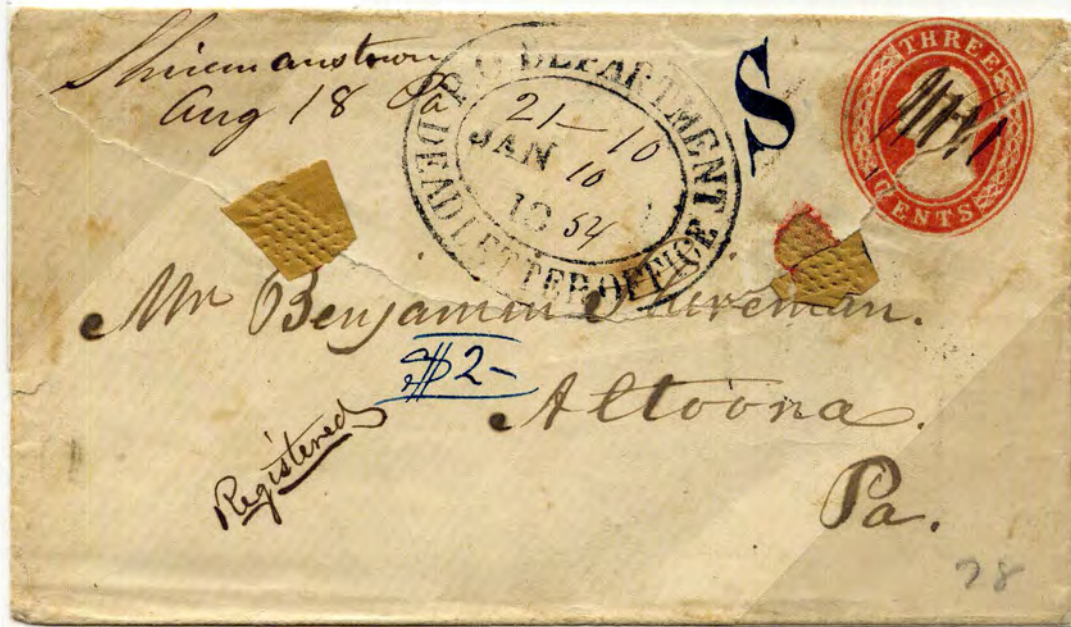 Shiremanstown
Aug 18 Pa
P.O. DEPARTMENT
DEAD LETTER OFFICE
21–10
JAN 10
18 54
S
THREE
CENTS
Mr Benjamin
$2-
Altoona.
Registered
Pa.
28